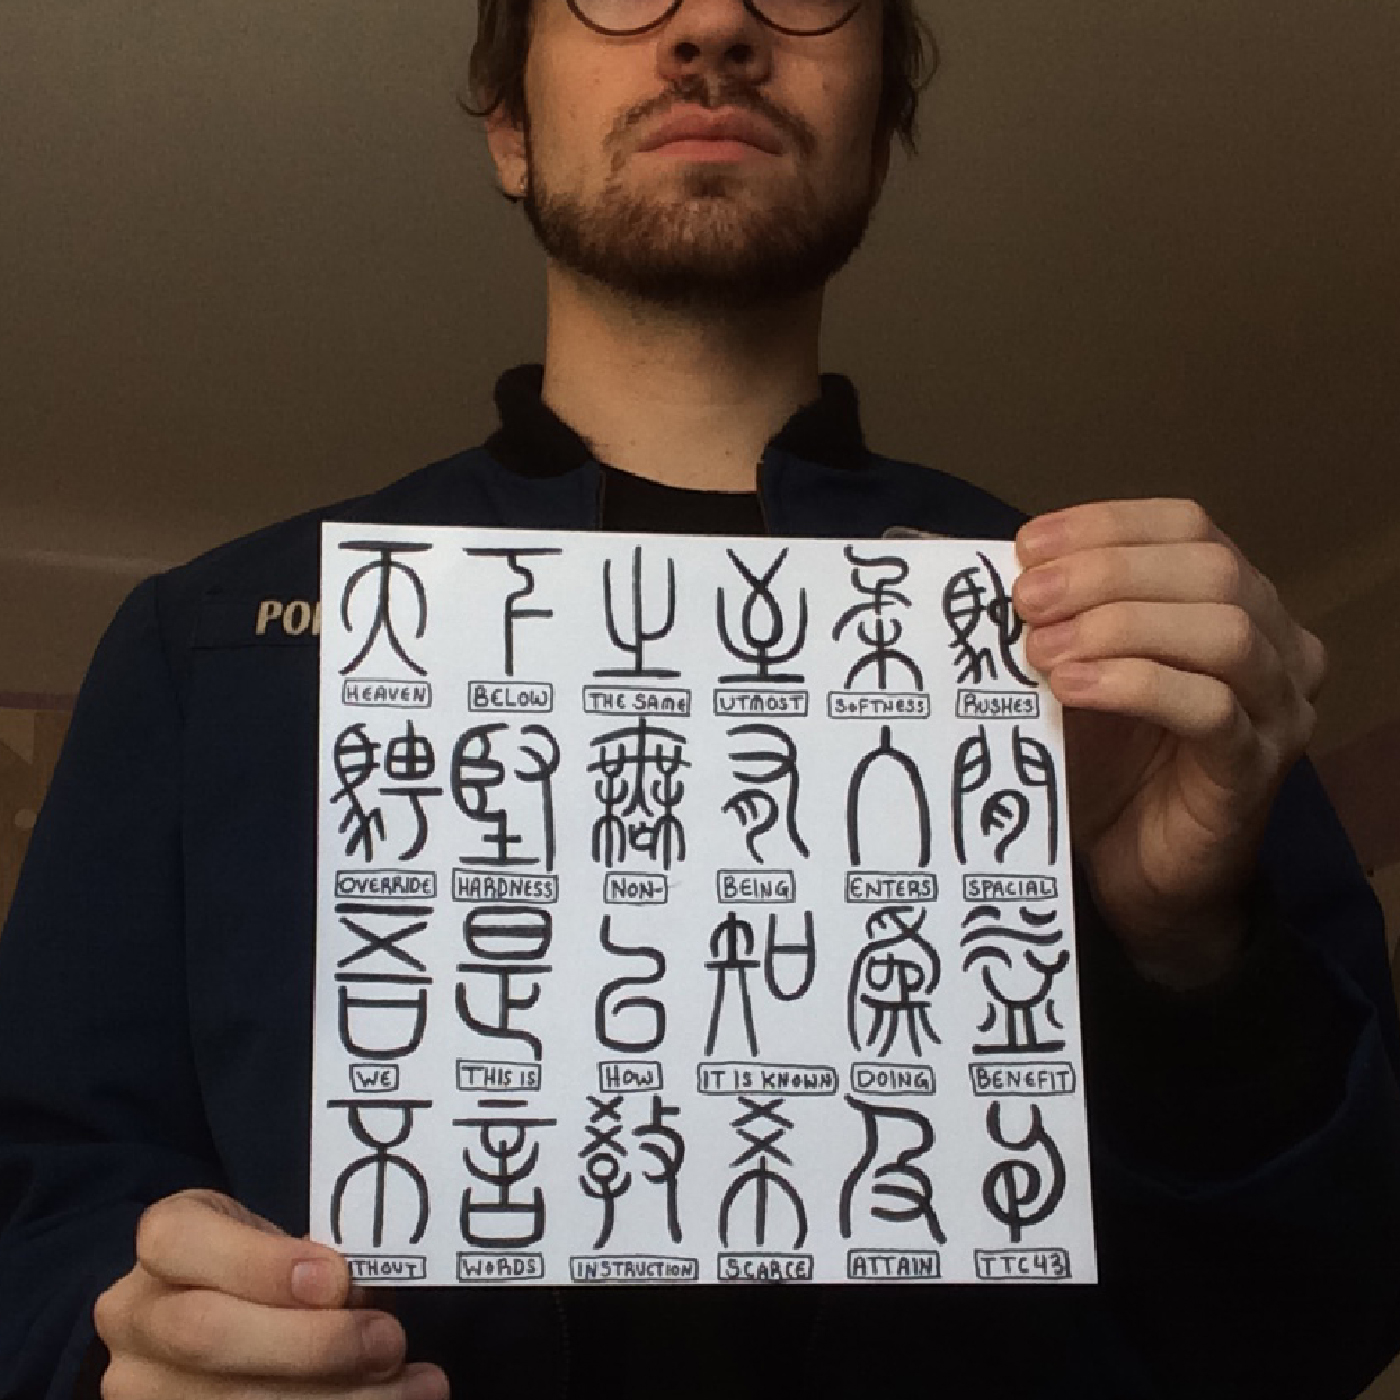 POL
天 下 之 至 柔 馳
HEAVEN BELOW THE SAME UTMOST SOFTNESS RUSHES
騁 堅 無 有 入 閒
OVERRIDE HARDNESS NON- BEING ENTERS SPACIAL
吾 是 以 知 爲 益
WE THIS IS HOW IT IS KNOWN DOING BENEFIT
不 言 教 希 及
THOUT WORDS INSTRUCTION SCARCE ATTAIN TTC43